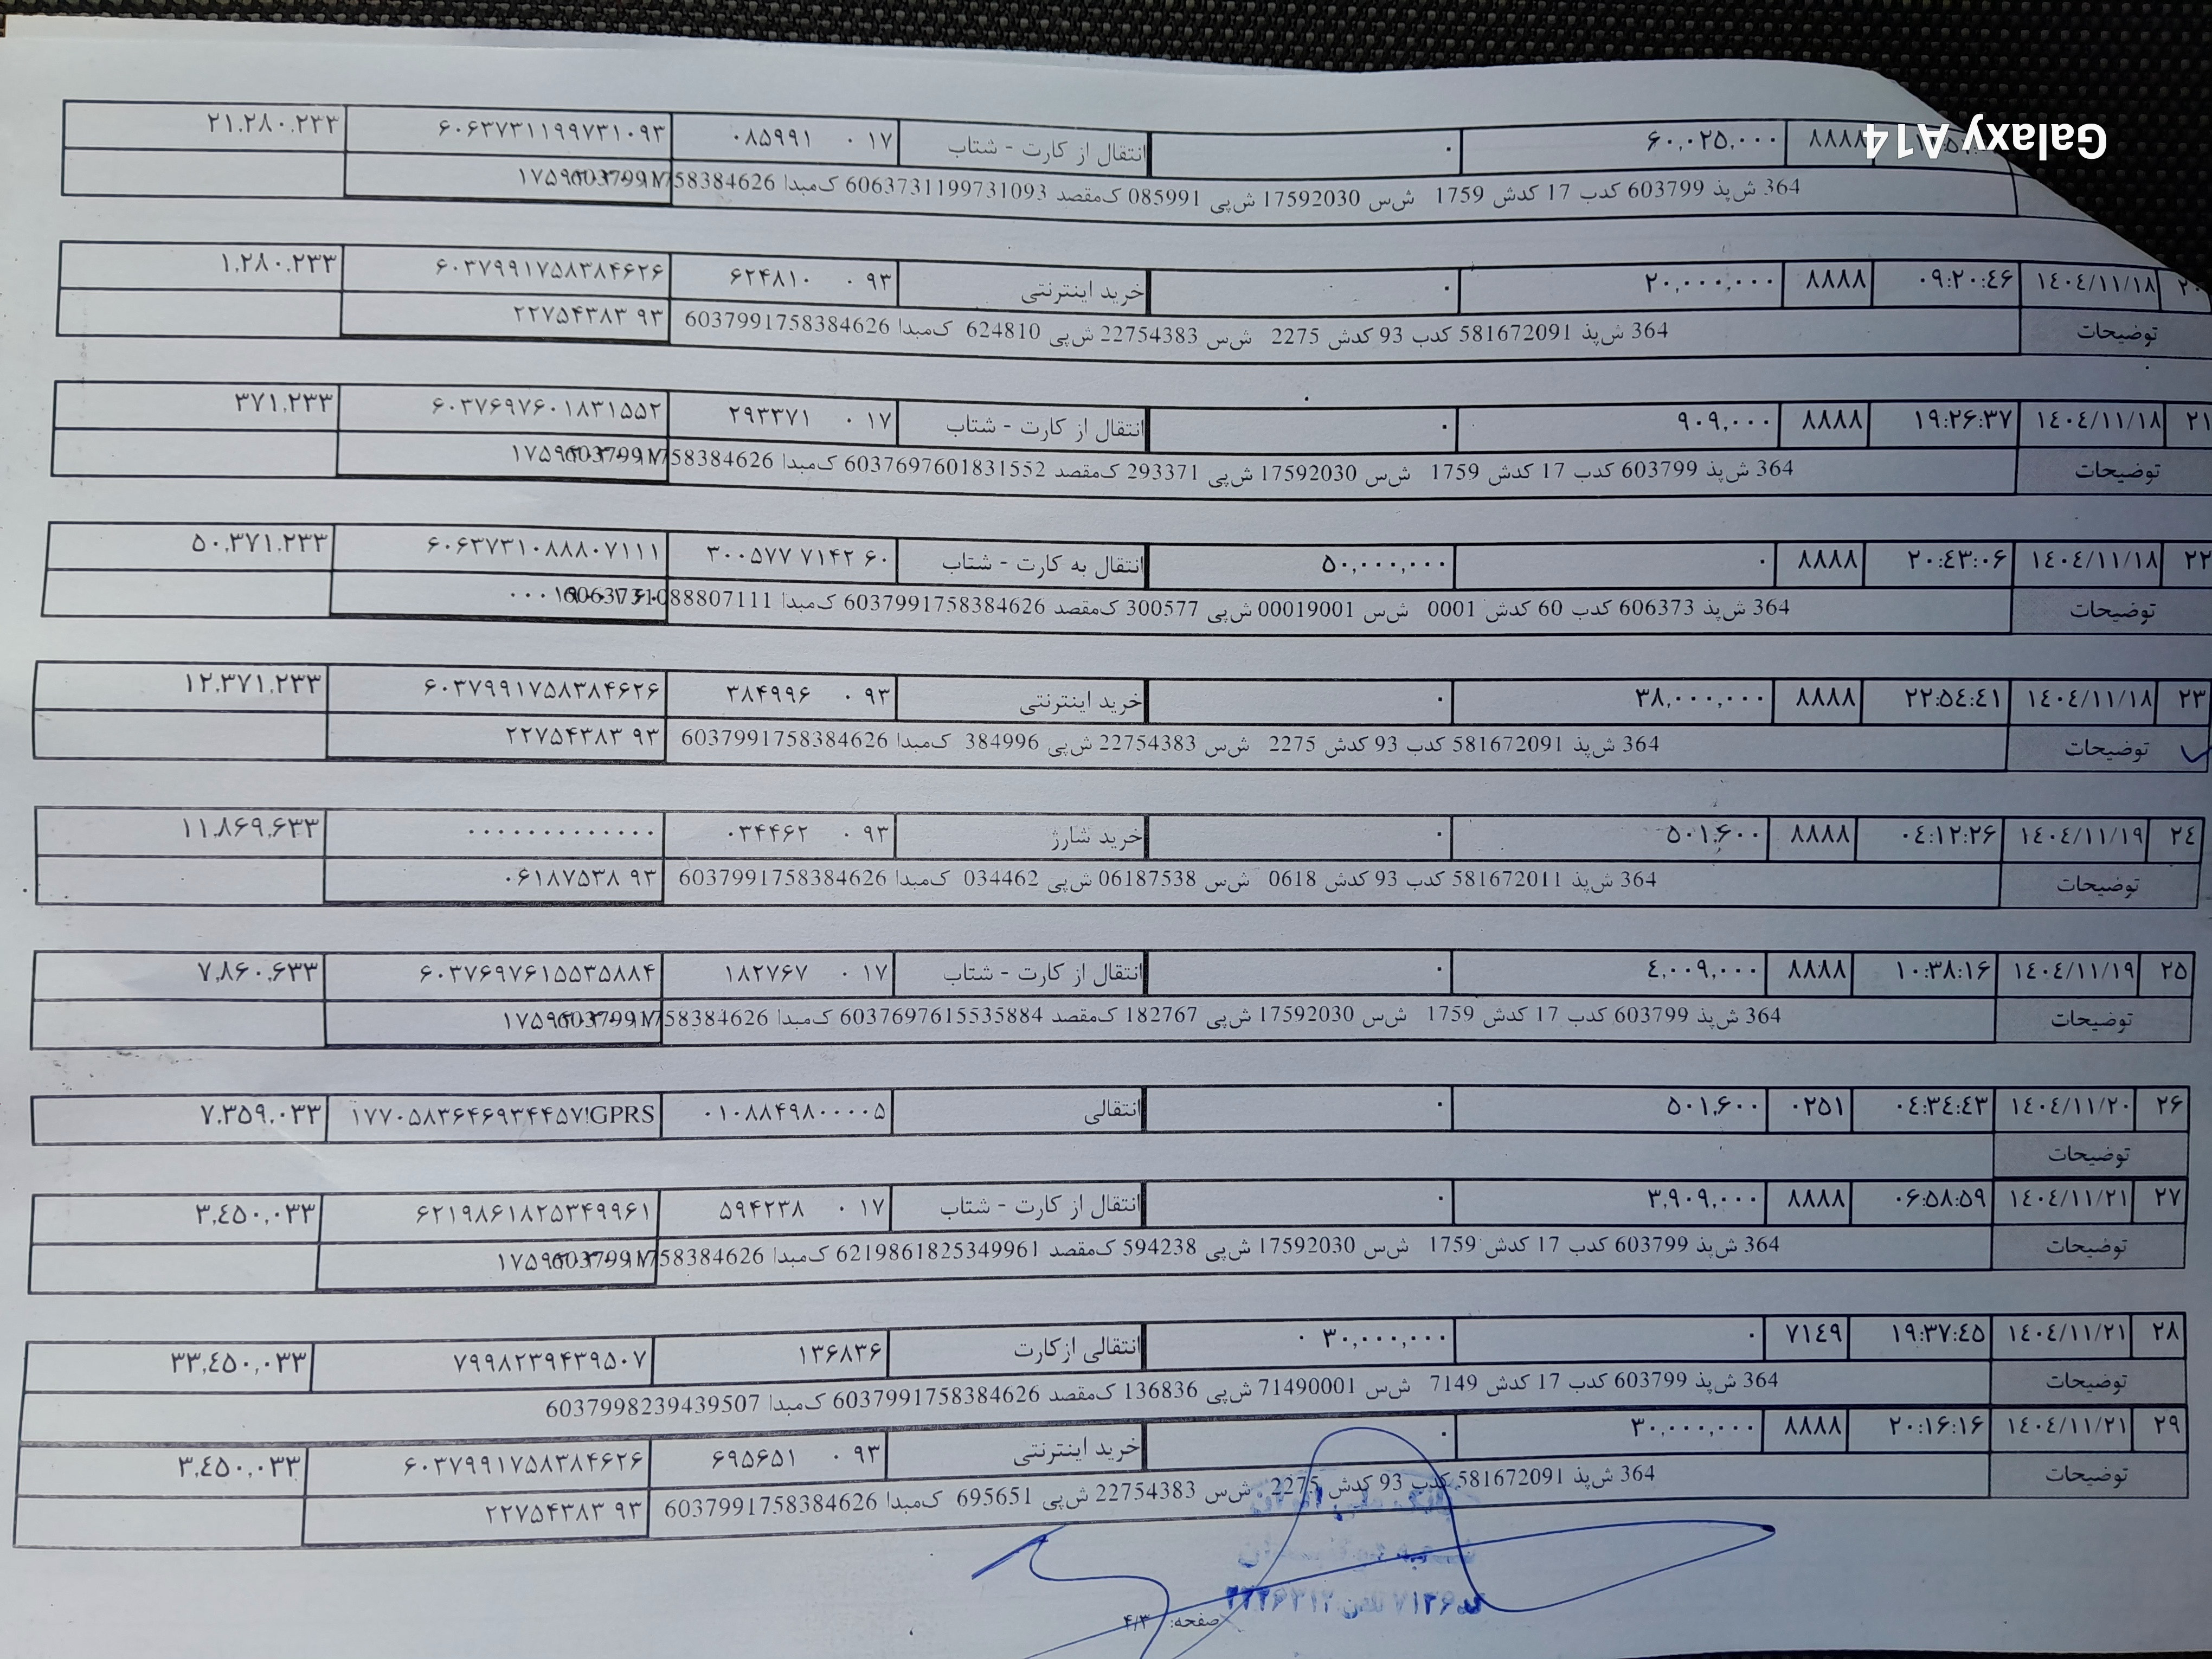 Galaxy A14
۸۸۸۸ ۶۰,۰۲۵,۰۰۰ ۰ انتقال از کارت - شتاب ۰۱۷ ۰۸۵۹۹۱ ۶۰۶۳۷۳۱۱۹۹۷۳۱۰۹۳ ۲۱,۲۸۰,۲۳۳
364 ش‌پذ 603799 کدب 17 کدش 1759 ش‌س 17592030 ش‌پی 085991 ک‌مقصد 6063731199731093 ک‌مبدا
۱۴۰۴/۱۱/۱۸ ۰۹:۲۰:۴۶ ۸۸۸۸ ۲۰,۰۰۰,۰۰۰ ۰ خرید اینترنتی ۰۹۳ ۶۲۴۸۱۰ ۶۰۳۷۹۹۱۷۵۸۳۸۴۶۲۶ ۱,۲۸۰,۲۳۳
توضیحات 364 ش‌پذ 581672091 کدب 93 کدش 2275 ش‌س 22754383 ش‌پی 624810 ک‌مبدا 6037991758384626 ۹۳ ۲۲۷۵۴۳۸۳
۲۱ ۱۴۰۴/۱۱/۱۸ ۱۹:۲۶:۳۷ ۸۸۸۸ ۹۰۹,۰۰۰ ۰ انتقال از کارت - شتاب ۰۱۷ ۲۹۳۳۷۱ ۶۰۳۷۶۹۷۶۰۱۸۳۱۵۵۲ ۳۷۱,۲۳۳
توضیحات 364 ش‌پذ 603799 کدب 17 کدش 1759 ش‌س 17592030 ش‌پی 293371 ک‌مقصد 6037697601831552 ک‌مبدا
۲۲ ۱۴۰۴/۱۱/۱۸ ۲۰:۴۳:۰۶ ۸۸۸۸ ۰ ۵۰,۰۰۰,۰۰۰ انتقال به کارت - شتاب ۶۰ ۷۱۴۲ ۳۰۰۵۷۷ ۶۰۶۳۷۳۱۰۸۸۸۰۷۱۱۱ ۵۰,۳۷۱,۲۳۳
توضیحات 364 ش‌پذ 606373 کدب 60 کدش 0001 ش‌س 00019001 ش‌پی 300577 ک‌مقصد 6037991758384626 ک‌مبدا
۲۳ ۱۴۰۴/۱۱/۱۸ ۲۲:۵۴:۴۱ ۸۸۸۸ ۳۸,۰۰۰,۰۰۰ ۰ خرید اینترنتی ۰۹۳ ۳۸۴۹۹۶ ۶۰۳۷۹۹۱۷۵۸۳۸۴۶۲۶ ۱۲,۳۷۱,۲۳۳
توضیحات 364 ش‌پذ 581672091 کدب 93 کدش 2275 ش‌س 22754383 ش‌پی 384996 ک‌مبدا 6037991758384626 ۹۳ ۲۲۷۵۴۳۸۳
۲۴ ۱۴۰۴/۱۱/۱۹ ۰۴:۱۲:۲۶ ۸۸۸۸ ۵۰۱,۶۰۰ ۰ خرید شارژ ۰۹۳ ۰۳۴۴۶۲ ۰۰۰۰۰۰۰۰۰۰۰۰۰ ۱۱,۸۶۹,۶۳۳
توضیحات 364 ش‌پذ 581672011 کدب 93 کدش 0618 ش‌س 06187538 ش‌پی 034462 ک‌مبدا 6037991758384626 ۹۳ ۰۶۱۸۷۵۳۸
۲۵ ۱۴۰۴/۱۱/۱۹ ۱۰:۳۸:۱۶ ۸۸۸۸ ۴,۰۰۹,۰۰۰ ۰ انتقال از کارت - شتاب ۰۱۷ ۱۸۲۷۶۷ ۶۰۳۷۶۹۷۶۱۵۵۳۵۸۸۴ ۷,۸۶۰,۶۳۳
توضیحات 364 ش‌پذ 603799 کدب 17 کدش 1759 ش‌س 17592030 ش‌پی 182767 ک‌مقصد 6037697615535884 ک‌مبدا
۲۶ ۱۴۰۴/۱۱/۲۰ ۰۴:۳۴:۴۳ ۰۲۵۱ ۵۰۱,۶۰۰ ۰ انتقالی ۰۱۰۸۸۴۹۸۰۰۰۰۵ ۱۷۷۰۵۸۳۶۴۶۹۳۴۴۵۷!GPRS ۷,۳۵۹,۰۳۳
توضیحات
۲۷ ۱۴۰۴/۱۱/۲۱ ۰۶:۵۸:۵۹ ۸۸۸۸ ۳,۹۰۹,۰۰۰ ۰ انتقال از کارت - شتاب ۰۱۷ ۵۹۴۲۳۸ ۶۲۱۹۸۶۱۸۲۵۳۴۹۹۶۱ ۳,۴۵۰,۰۳۳
توضیحات 364 ش‌پذ 603799 کدب 17 کدش 1759 ش‌س 17592030 ش‌پی 594238 ک‌مقصد 6219861825349961 ک‌مبدا
۲۸ ۱۴۰۴/۱۱/۲۱ ۱۹:۳۷:۴۵ ۷۱۴۹ ۰ ۳۰,۰۰۰,۰۰۰ ۰ انتقالی ازکارت ۱۳۶۸۳۶ ۷۹۹۸۲۳۹۴۳۹۵۰۷ ۳۳,۴۵۰,۰۳۳
توضیحات 364 ش‌پذ 603799 کدب 17 کدش 7149 ش‌س 71490001 ش‌پی 136836 ک‌مقصد 6037991758384626 ک‌مبدا 6037998239439507
۲۹ ۱۴۰۴/۱۱/۲۱ ۲۰:۱۶:۱۶ ۸۸۸۸ ۳۰,۰۰۰,۰۰۰ ۰ خرید اینترنتی ۰۹۳ ۶۹۵۶۵۱ ۶۰۳۷۹۹۱۷۵۸۳۸۴۶۲۶ ۳,۴۵۰,۰۳۳
توضیحات 364 ش‌پذ 581672091 کدب 93 کدش 2275 ش‌س 22754383 ش‌پی 695651 ک‌مبدا 6037991758384626 ۹۳ ۲۲۷۵۴۳۸۳
صفحه: ۴/۳